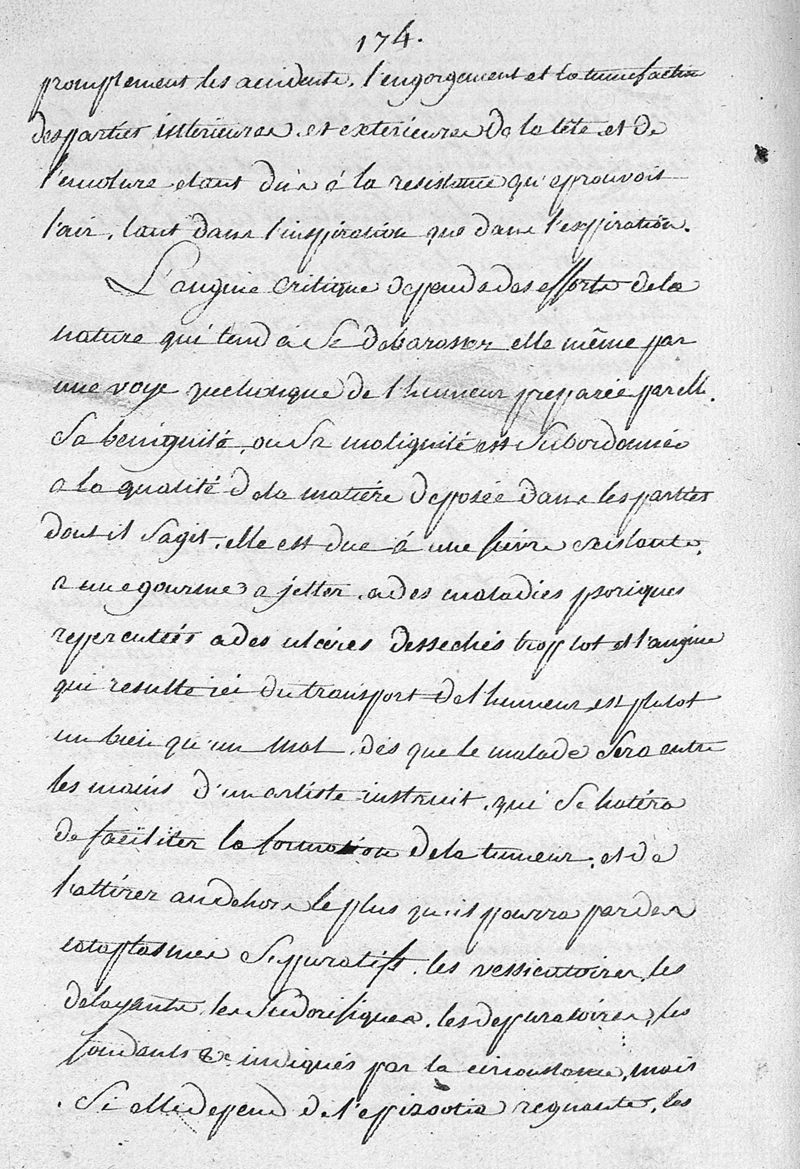 174.
promptement les accidents, l'engorgement et la tumefaction
des parties intérieures et extérieures de la tête et de
l'encolure etant dûs à la resistance qu'eprouvoit
l'air, tant dans l'inspiration que dans l'expiration.
L'angine critique depends des efforts de la
nature qui tend a se debarasser elle même par
une voye quelconque de l'humeur preparée par elle.
Sa benignité, ou sa malignité est subordonnée
a la qualité de la matière deposée dans les parties
dont il sagit, elle est due à une fievre existante,
a une gourme a jetter, a des maladies psoriques
repercutées a des ulcères dessechés trop tot et l'angine
qui resulte ici du transport de l'humeur est plutot
un bien qu'un mal, dès que le malade sera entre
les mains d'un artiste instruit, qui se hatéra
de faciliter la formation de la tumeur, et de
l'attirer au dehors le plus qu'il pourra par des
cataplasmes supuratifs, les vessicatoires, les
delayants, les sudorifiques, les depuratoires, les
fondants &c. indiqués par la circonstance, mais
si elle depend de l'epizootie regnante, les